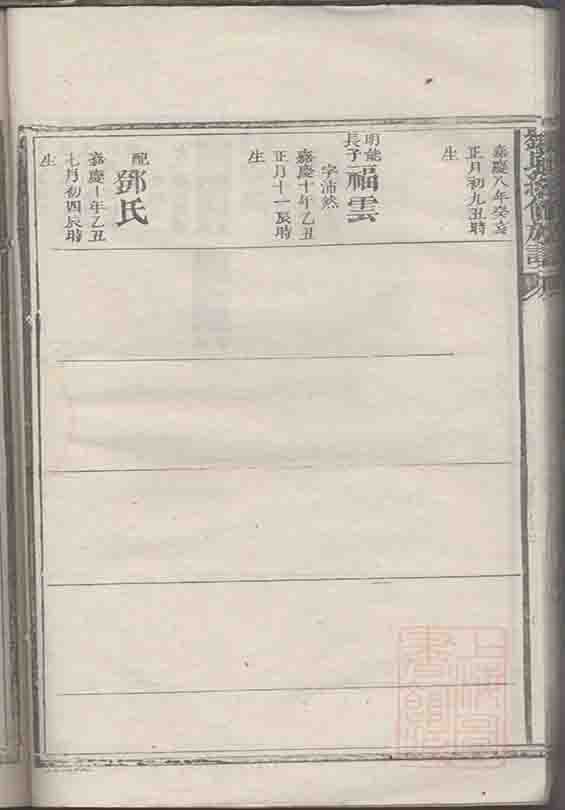 嘉慶八年癸亥
正月初九丑時
生
明能
長子
福雲
字沛然
嘉慶十年乙丑
正月十一辰時
生
配
鄧氏
嘉慶十年乙丑
七月初四辰時
生